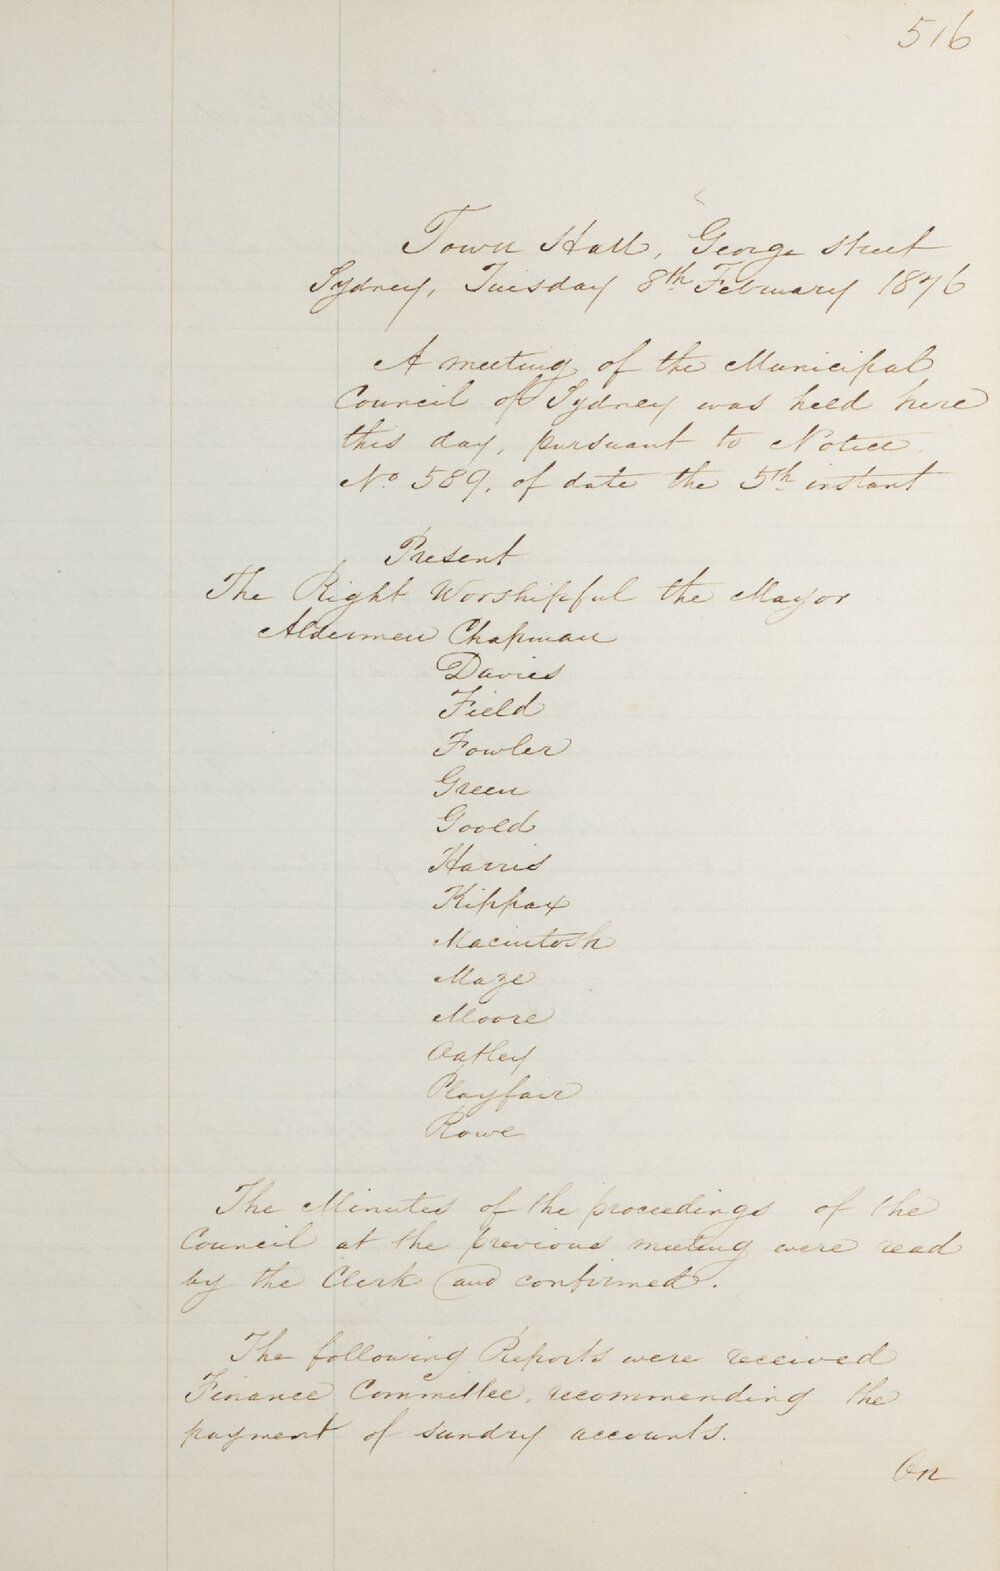 516
Town Hall, George Street
Sydney, Tuesday 8th February 1876
A meeting of the Municipal
Council of Sydney was held here
this day, pursuant to Notice
No 589, of date the 5th instant
Present
The Right Worshipful the Mayor
Aldermen Chapman
Davies
Field
Fowler
Green
Goold
Harris
Kippax
Macintosh
Maze
Moore
Oatley
Playfair
Rowe
The Minutes of the proceedings of the
Council at the previous meeting were read
by the Clerk and confirmed.
The following Reports were received
Finance Committee, recommending the
payment of sundry accounts.
On